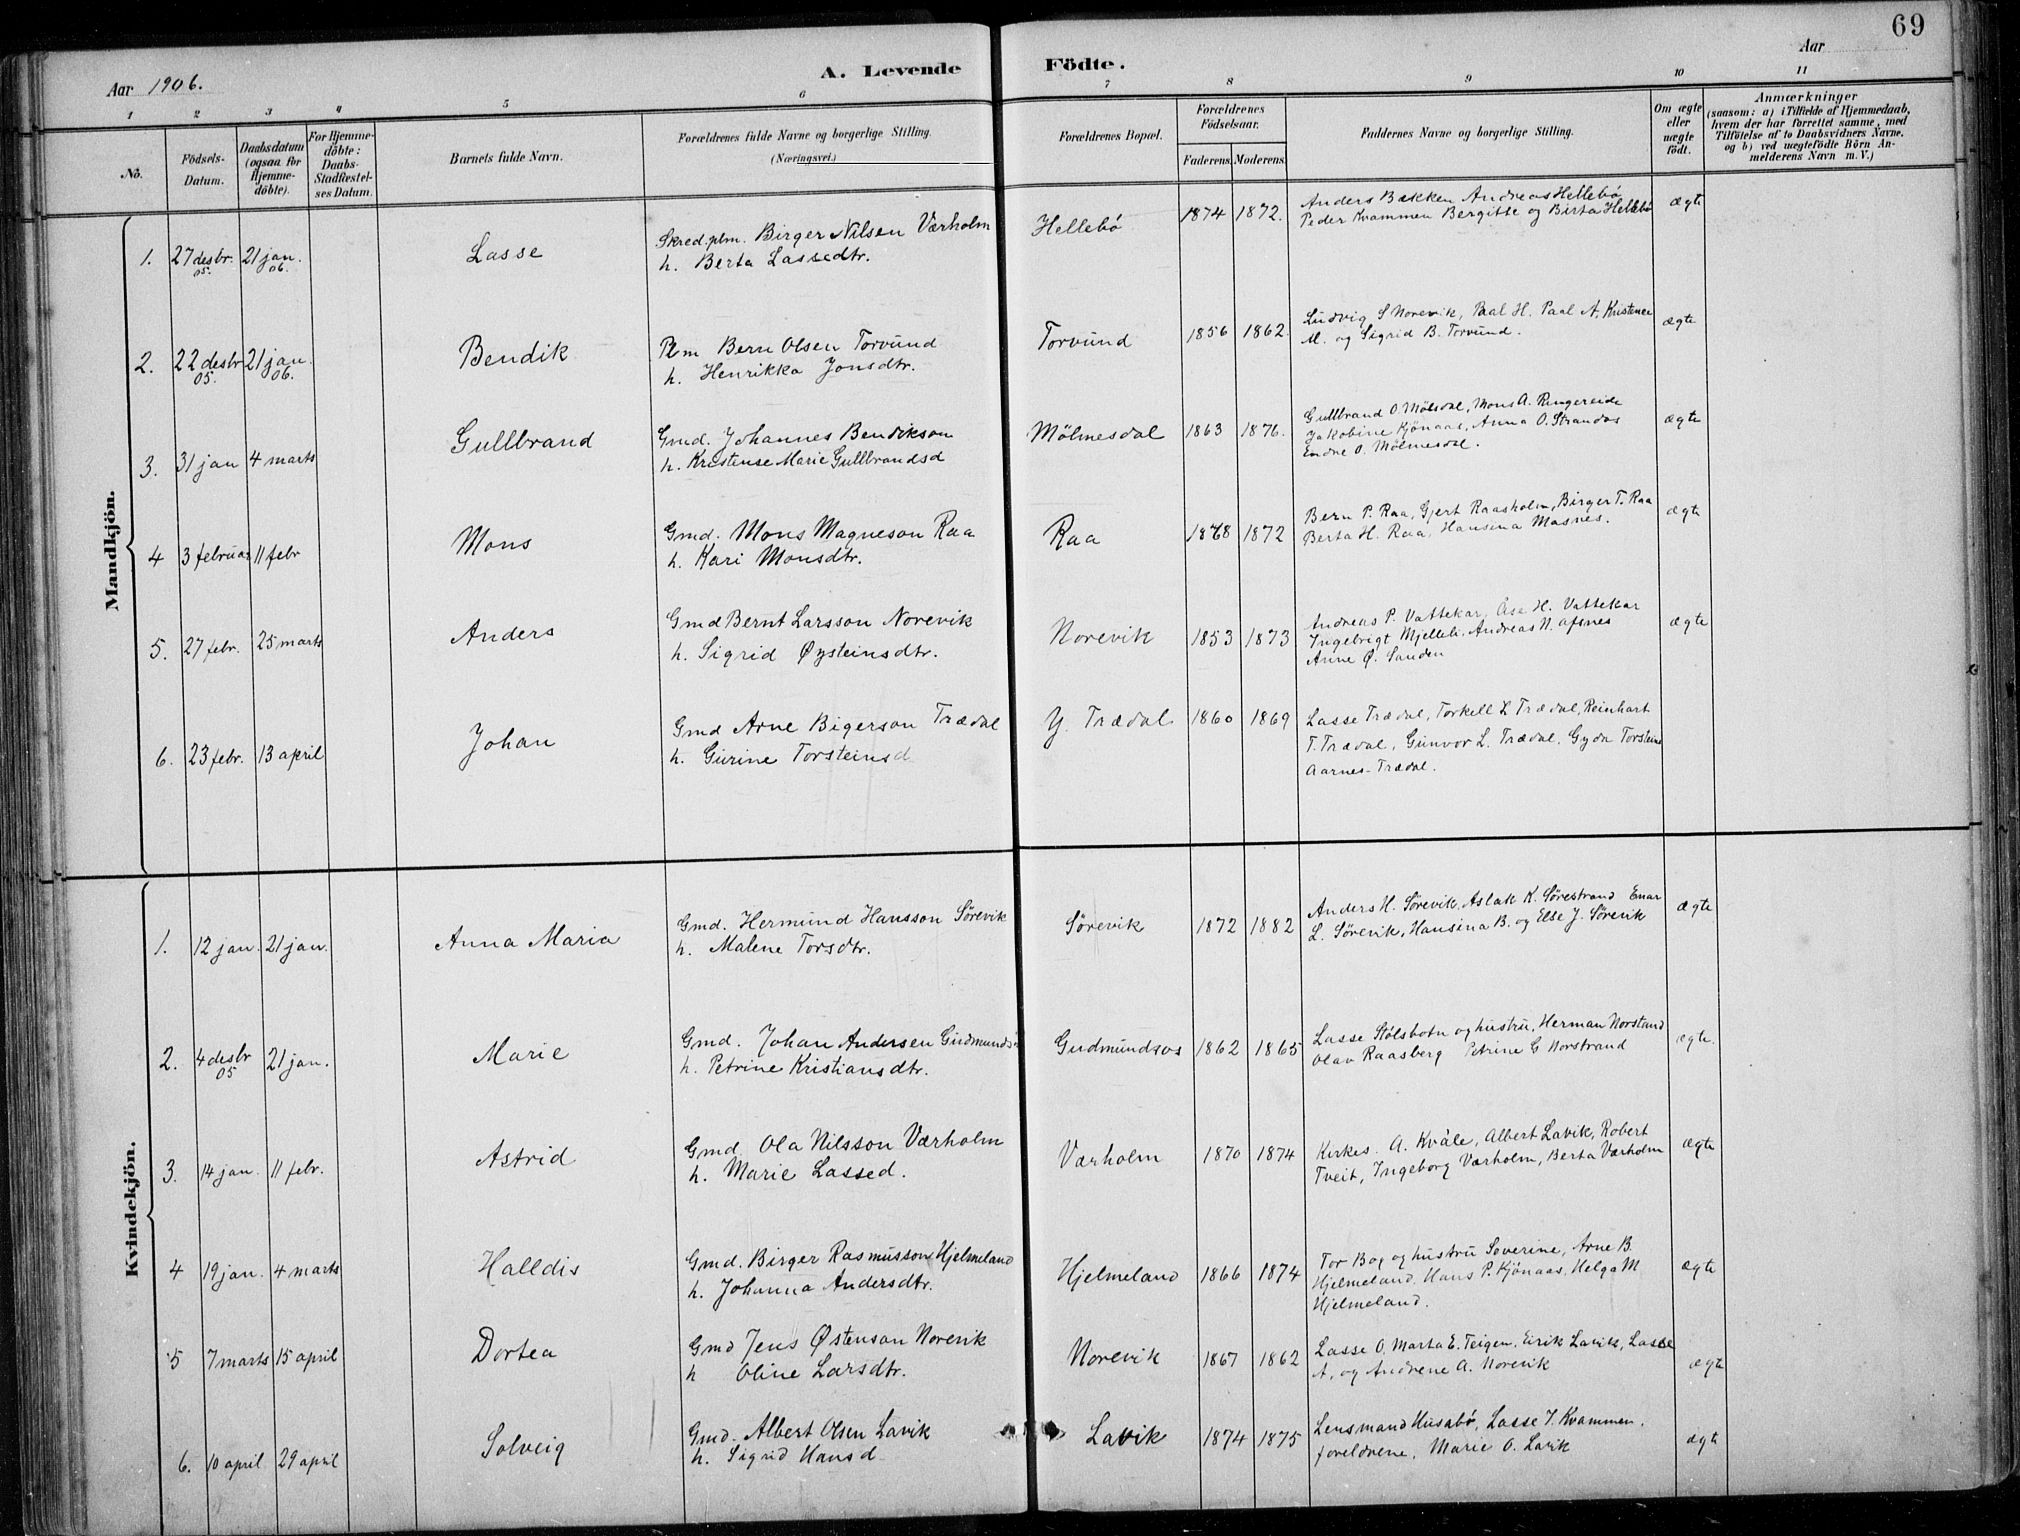 69
Aar 1906.
A. Levende Födte.
Aar
1 2 3 4 5 6 7 8 9 10 11
No.
Födsels-Datum.
Daabsdatum (ogsaa for Hjemmedöbte).
For Hjemmedöbte: Daabs-Stadfæstelses Datum.
Barnets fulde Navn.
Forældrenes fulde Navne og borgerlige Stilling. (Næringsvei.)
Forældrenes Bopæl.
Forældrenes Födselsaar.
Faderens. Moderens.
Faddernes Navne og borgerlige Stilling.
Om ægte eller uægte födt.
Anmærkninger
(saasom: a) i Tilfælde af Hjemmedaab, hvem der har forrettet samme, med Tilföielse af to Daabsvidners Navne. og b) ved uægtefödte Börn Anmelderens Navn m. V.)
Mandkjön.
1. 27 desbr. 05. 21 jan. 06. Lasse
Skred.plm. Birger Nilsen Værholm
h. Berta Lassedtr.
Hellebø 1874 1872.
Anders Bækken Andreas Hellebø
Peder Kvammen Bergitte og Birta Hellebø
ægte
2. 22 desbr 05. 21 jan. 06. Bendik
Plm Bern Olsen Torvund
h. Henrikka Jonsdtr.
Torvund 1856 1862.
Ludvig S Norevik, Paal H. Paal A, Kristence
M. og Sigrid B. Torvund.
ægte
3. 31 jan 4 marts Gullbrand
Gmd. Johannes Bendikson
h. Kristense Marie Gullbrandsd
Mølmesdal 1863 1876.
Gullbrand O. Mølsdal, Mons A. Ringereide
Jakobine Kjønaas, Anna O. Strandos
Endre O. Mølmesdal.
ægte
4 3 februar 11 febr Mons
Gmd. Mons Magneson Raa
h. Kari Monsdtr.
Raa 1868 1872
Bern P. Raa, Gjert Raasholm, Birger T. Raa
Berta H. Raa, Hansina Masnes.
ægte
5. 27 febr. 25 marts Anders
Gmd Bernt Larsson Norevik
h. Sigrid Øysteinsdtr.
Norevik 1853 1873
Andreas P. Vattekar, Åsa H. Vattekar
Ingebrigt Mjelleli. Andreas N. Ofnes
Anne Ø. Sanden
ægte
6. 23 febr. 13 april Johan
Gmd Arne Bigerson Trædal
h. Gurine Torsteinsd
Y. Trædal 1860 1869
Lasse Trædal, Torkell L Trædal, Reinhart
T. Trædal, Gunvor L. Trædal. Gyda Torsteine
Aarnes-Trædal.
Kvindekjön.
1. 12 jan. 21 jan. Anna Maria
Gmd. Hermund Hansson Sørevik
h. Malene Torsdtr.
Sørevik 1872 1882
Anders H. Sørevik, Aslak K. Sørestrand Enar
L. Sørevik, Hansina B. og Else J. Sørevik
ægte
2. 4 desbr 05 21 jan. Marie
Gmd. Johan Andersen Gudmunds
h. Petrine Kristiansdtr.
Gudmundsos 1862 1865
Lasse Stølsbotn og hustru, Herman Norstand
Olav Raasberg Petrine G Norstrand
ægte.
3. 14 jan. 11 febr. Astrid
Gmd. Ola Nilsson Værholm
h. Marie Lassed.
Værholm 1870 1874
Kirkes. A. Kvåle, Albert Lavik, Robert
Tveit, Ingeborg Værholm, Berta Værholm
ægte
4 19 jan. 4 marts Halldis
Gmd. Birger Rasmusson Hjelmeland
h. Johanna Andersdtr.
Hjelmeland 1866 1874
Tor Bog og hustru Soverine, Arne B.
Hjelmeland, Hans P. Kjønaas, Helga M
Hjelmeland.
ægte
5 7 marts 15 april Dortea
Gmd Jens Østenson Norevik
h Oline Larsdtr.
Norevik 1867 1862
Lasse O. Marta E. Teigen, Eirik Lavik, Lasse
A, og Andrene A. Norevik
ægte
6. 10 april 29 april Solveig
Gmd. Albert Olsen Lavik
h. Sigrid Hansd.
Lavik 1874 1875
Lensmand Husabø, Lasse J. Kvammen.
foreldrene, Marie O. Lavik
ægte